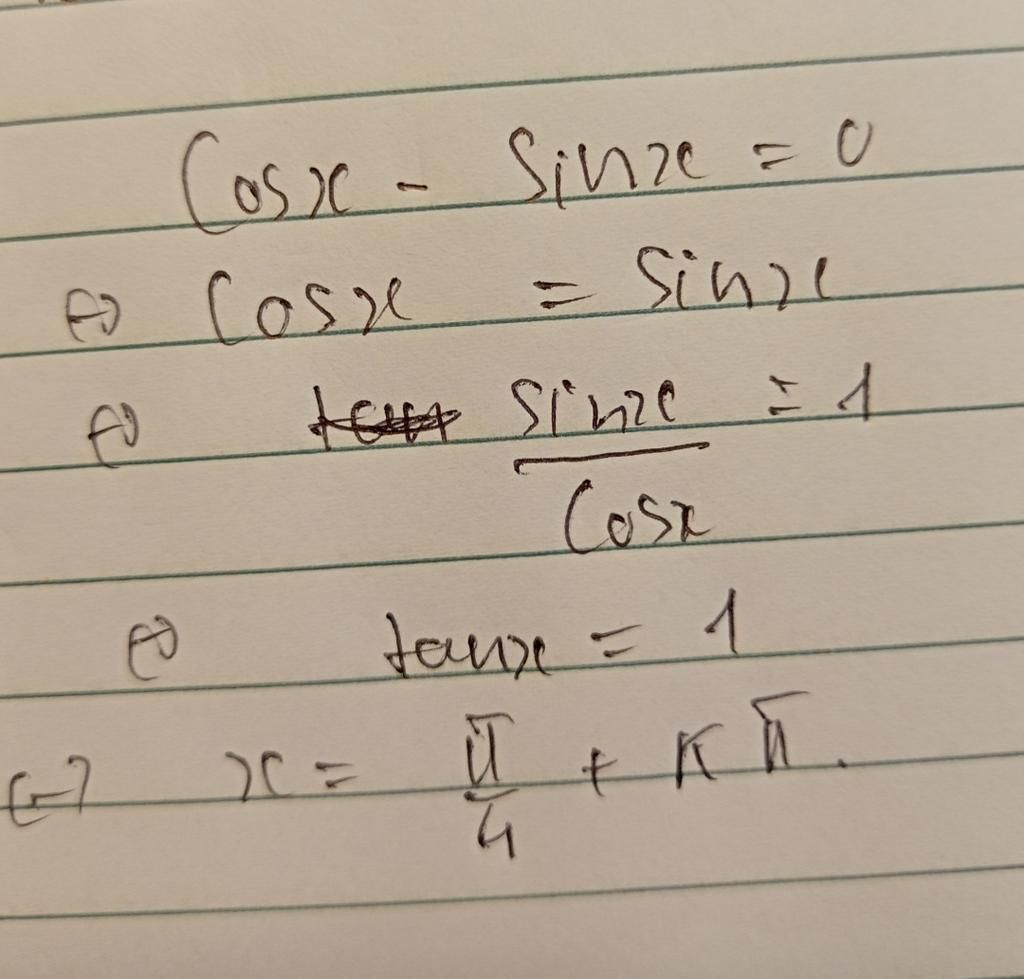 Cosx - Sinx = 0
⇔ Cosx = Sinx
⇔ sinx/Cosx = 1
⇔ tanx = 1
⇔ x = π/4 + Kπ.